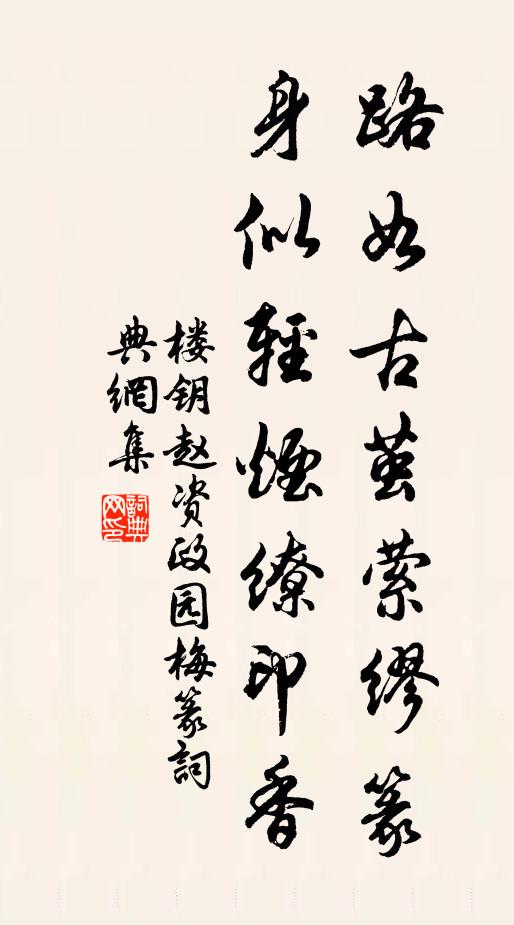 路如古茧萦缪篆
身似輕煙繚印香
楼钥赵资政园梅篆詞
典網集
詞典網印